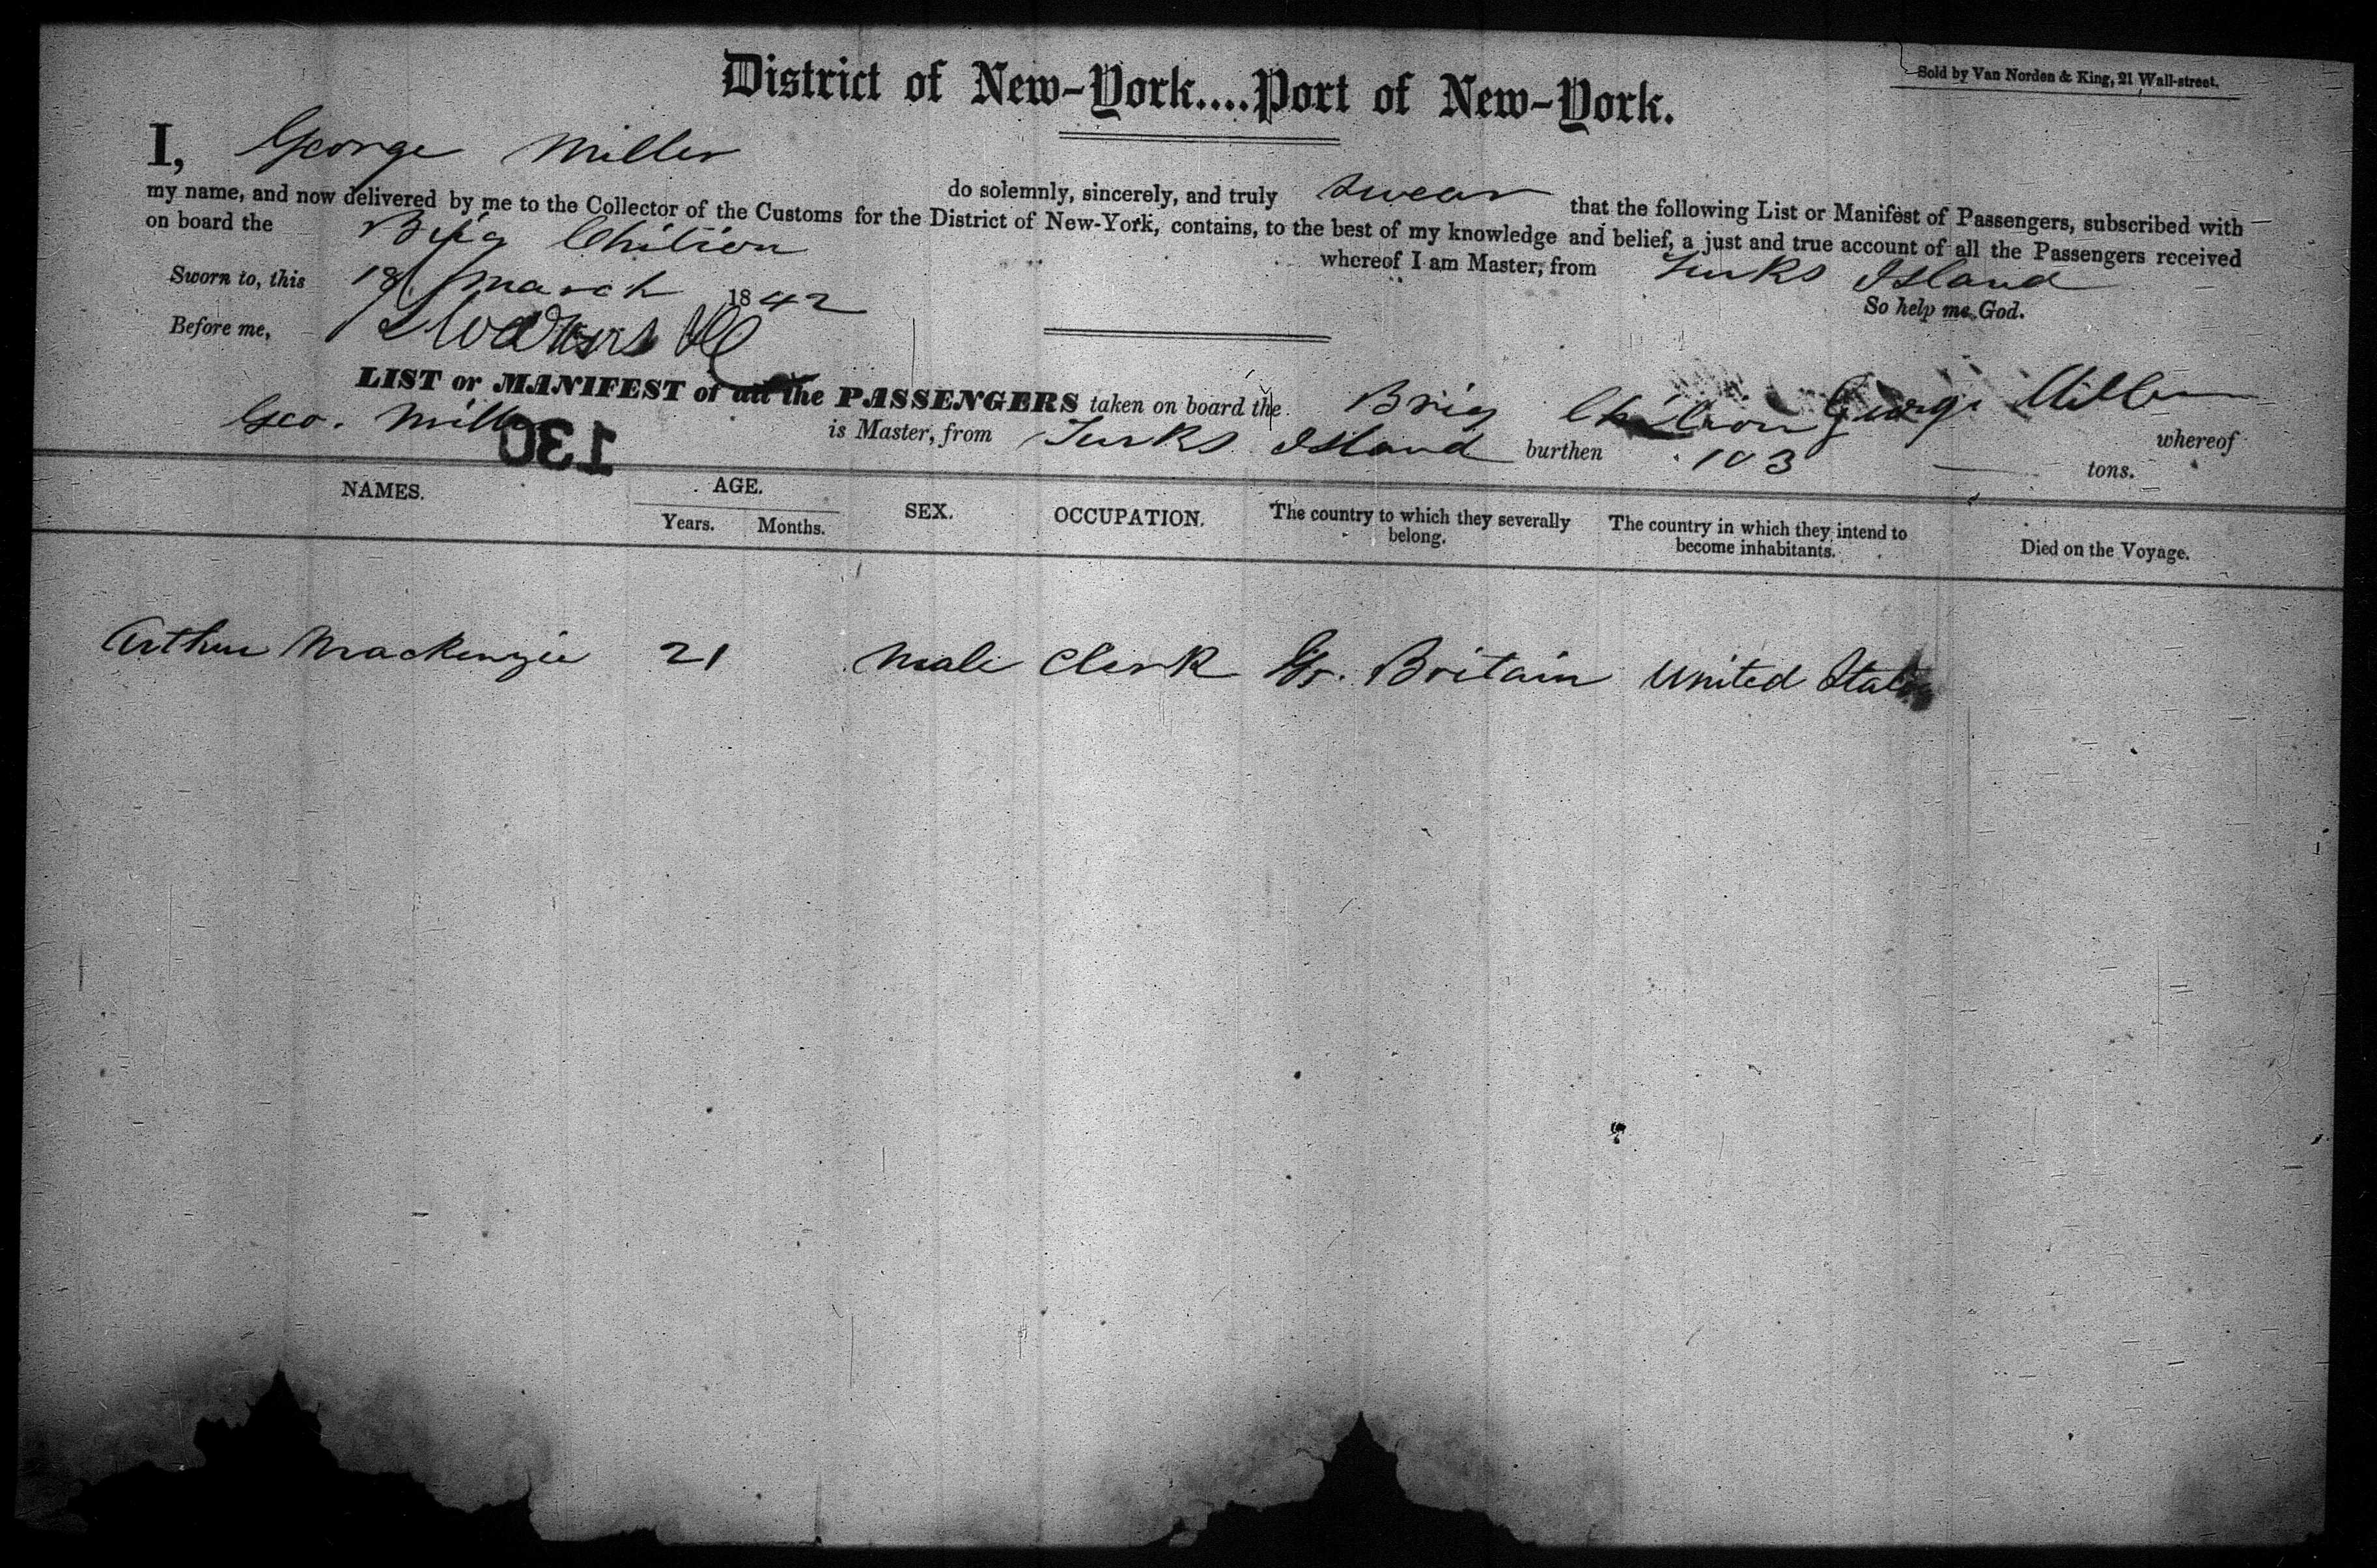 Sold by Van Norden & King, 21 Wall-street.
District of New-York....Port of New-York.
I, George Miller do solemnly, sincerely, and truly swear that the following List or Manifest of Passengers, subscribed with
my name, and now delivered by me to the Collector of the Customs for the District of New-York, contains, to the best of my knowledge and belief, a just and true account of all the Passengers received
on board the Brig Chilion whereof I am Master, from Turks Island
Sworn to, this 18 March 1842 So help me God.
Before me,
George Miller
LIST or MANIFEST of all the PASSENGERS taken on board the Brig Chilion whereof
Geo. Miller is Master, from Turks Island burthen 103 tons.
130
NAMES. AGE. SEX. OCCUPATION. The country to which they severally belong. The country in which they intend to become inhabitants. Died on the Voyage.
Years. Months.
Arthur Mackenzie 21 male Clerk Gr. Britain United States